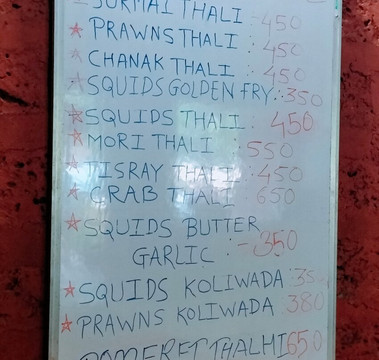 SURMAI THALI 450
PRAWNS THALI : 450
CHANAK THALI : 450
SQUIDS GOLDEN FRY : 350
SQUIDS THALI : 450
MORI THALI : 550
TISRAY THALI : 450
CRAB THALI : 650
SQUIDS BUTTER
GARLIC : - 350
SQUIDS KOLIWADA :
PRAWNS KOLIWADA 380
POMFRET THALMI 650